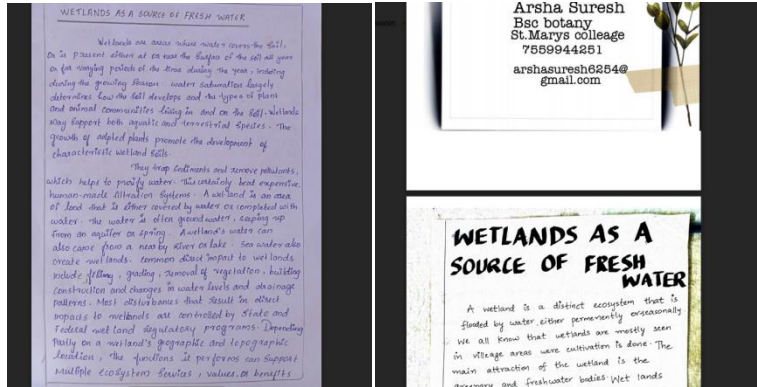 WETLANDS AS A SOURCE OF FRESH WATER
Wetlands are areas where water covers the soil,
Or is present either at or near the surface of the soil all year
or for varying periods of the time during the year, including
during the growing season. water saturation largely
determines how the soil develops and the types of plant
and animal communities living in and on the soil. Wetlands
may support both aquatic and terrestrial species. The
growth of adpted plants promote the development of
characteristic wetland soils.
They trap sediments and remove pollutants,
which helps to purify water. This certainly beat expensive
human-made filtration systems. A wetland is an area
of land that is either covered by water or completed with
water. The water is often groundwater, seeping up
from an aquifer or spring. A wetland's water can
also came from a nearby river or lake. Sea water also
create wetlands. common direct impact to wetlands
include filling, grading, removal of vegetation, building
construction and changes in water levels and drainage
patterns. Most disturbances that result in direct
impacts to wetlands are controlled by State and
Federal wetland regulatory programs. Depending
Partly on a wetland's geographic and topographic
location, The functions it performs can support
Multiple ecosystem services, values, or benefits
Arsha Suresh
Bsc botany
St.Marys colleage
7559944251
arshasuresh6254@
gmail.com
WETLANDS AS A
SOURCE OF FRESH
WATER
A wetland is a distinct ecosystem that is
flooded by water, either permenently or seasonally
We all know that wetlands are mostly seen
in vileage areas were cultivation is done. The
main attraction of the wetland is the
greenary and freshwater bodies. Wet lands